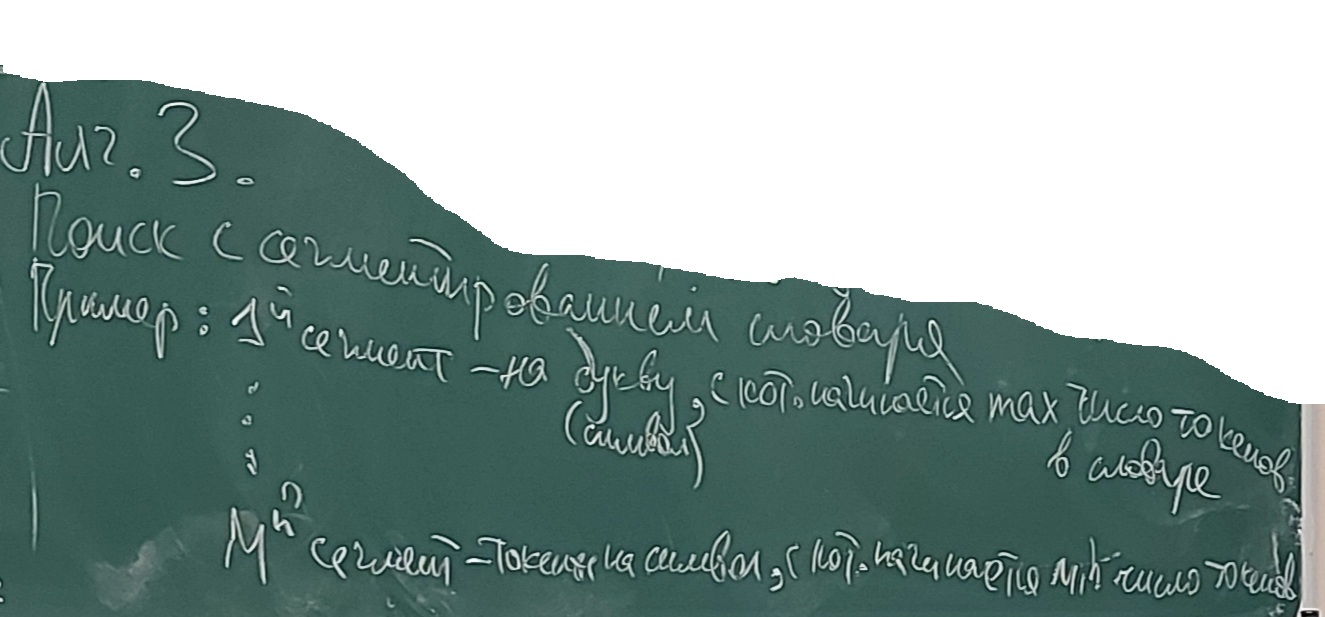 Алг. 3.
Поиск с сегментированием словаря
Пример: 1й сегмент – на букву, с кот. начинается max число токенов
(символ) в словаре
Mй сегмент – токены на символ, с кот. начинается min число токенов